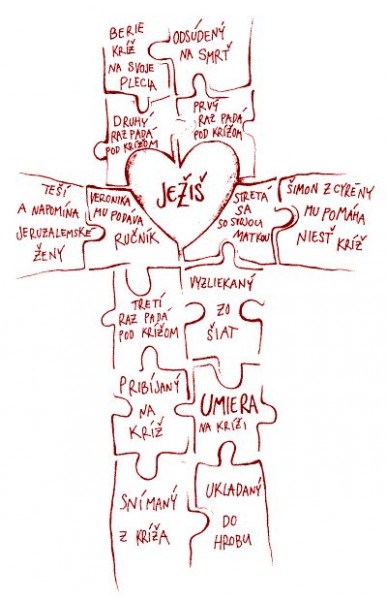 BERIE
KRÍŽ
NA SVOJE
PLECIA
ODSÚDENÝ
NA SMRŤ
DRUHÝ
RAZ PADÁ
POD KRÍŽOM
PRVÝ
RAZ PADÁ
POD KRÍŽOM
JEŽIŠ
TEŠÍ
A NAPOMÍNA
JERUZALEMSKÉ
ŽENY
VERONIKA
MU PODÁVA
RUČNÍK
STRETÁ
SA
SO SVOJOU
MATKOU
ŠIMON Z CYRÉNY
MU POMÁHA
NIESŤ KRÍŽ
TRETÍ
RAZ PADÁ
POD KRÍŽOM
VYZLIEKANÝ
ZO
ŠIAT
PRIBÍJANÝ
NA
KRÍŽ
UMIERA
NA KRÍŽI
SNÍMANÝ
Z KRÍŽA
UKLADANÝ
DO
HROBU